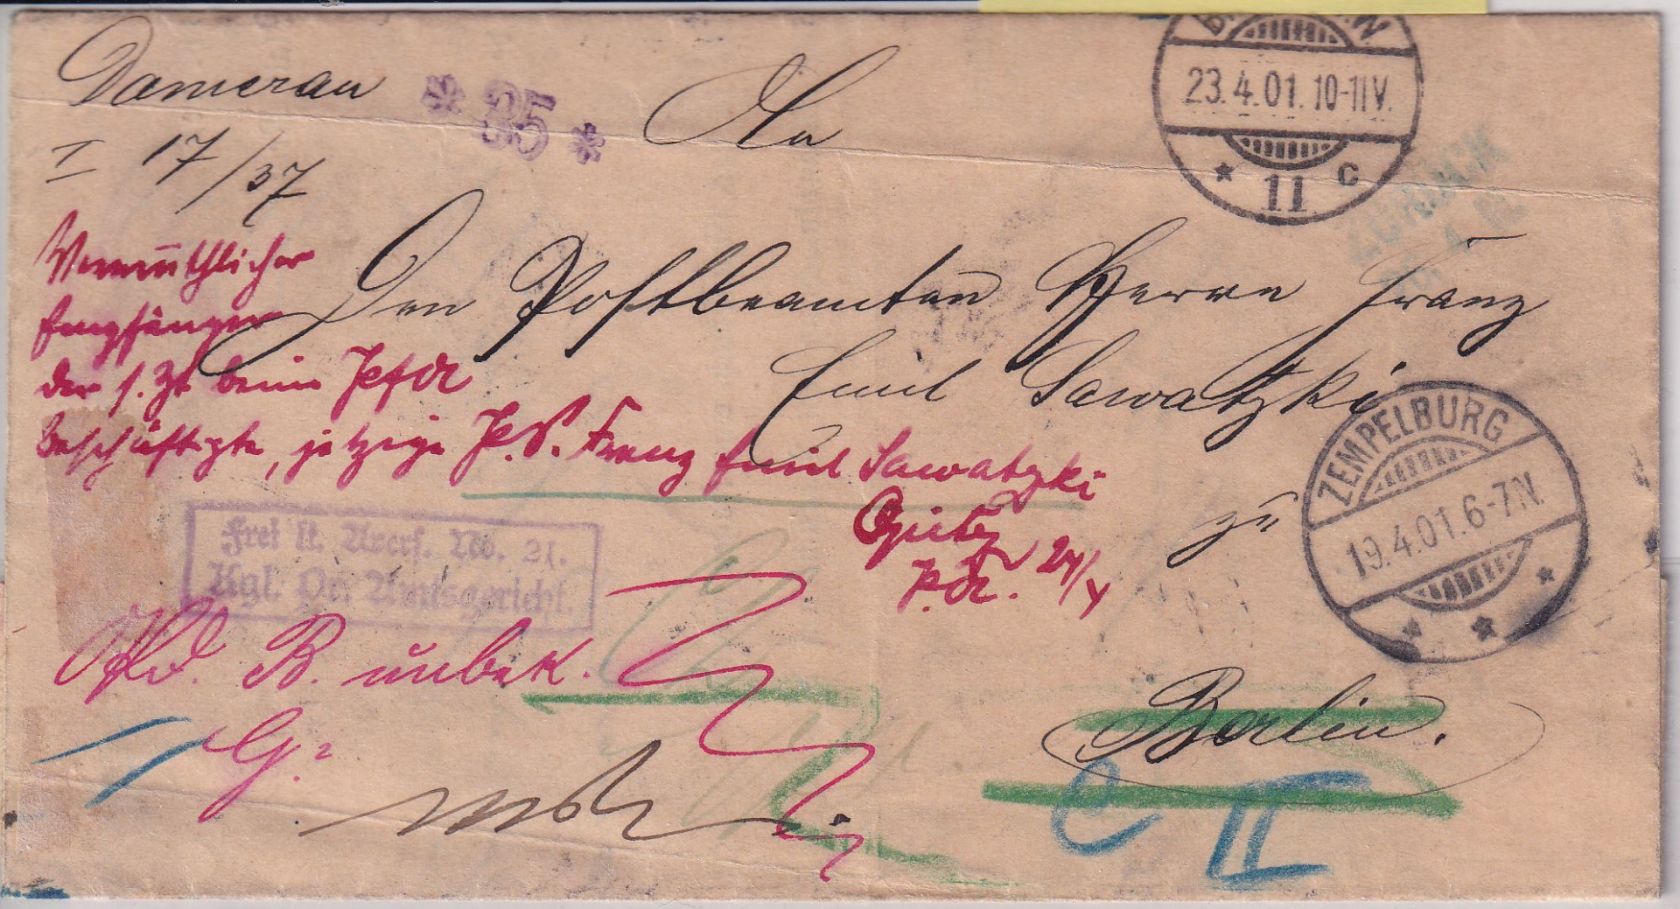 Damerau
* 35 *
An
I 17/37
23.4.01. 10-11V.
* 11 c
Den Postbeamten Herrn Franz
Emil Sawatzki
zu
Berlin.
Vermuthlicher
Empfänger
der s. Zt beim
beschäftigte, jetzige P.S. Franz Emil Sawatzki
P.A. 24/4
ZEMPELBURG
19.4.01. 6-7N.
* * *
Frei lt. Avers. No. 21.
Kgl. Pr. Amtsgericht.
B. unbek.
G.
C II